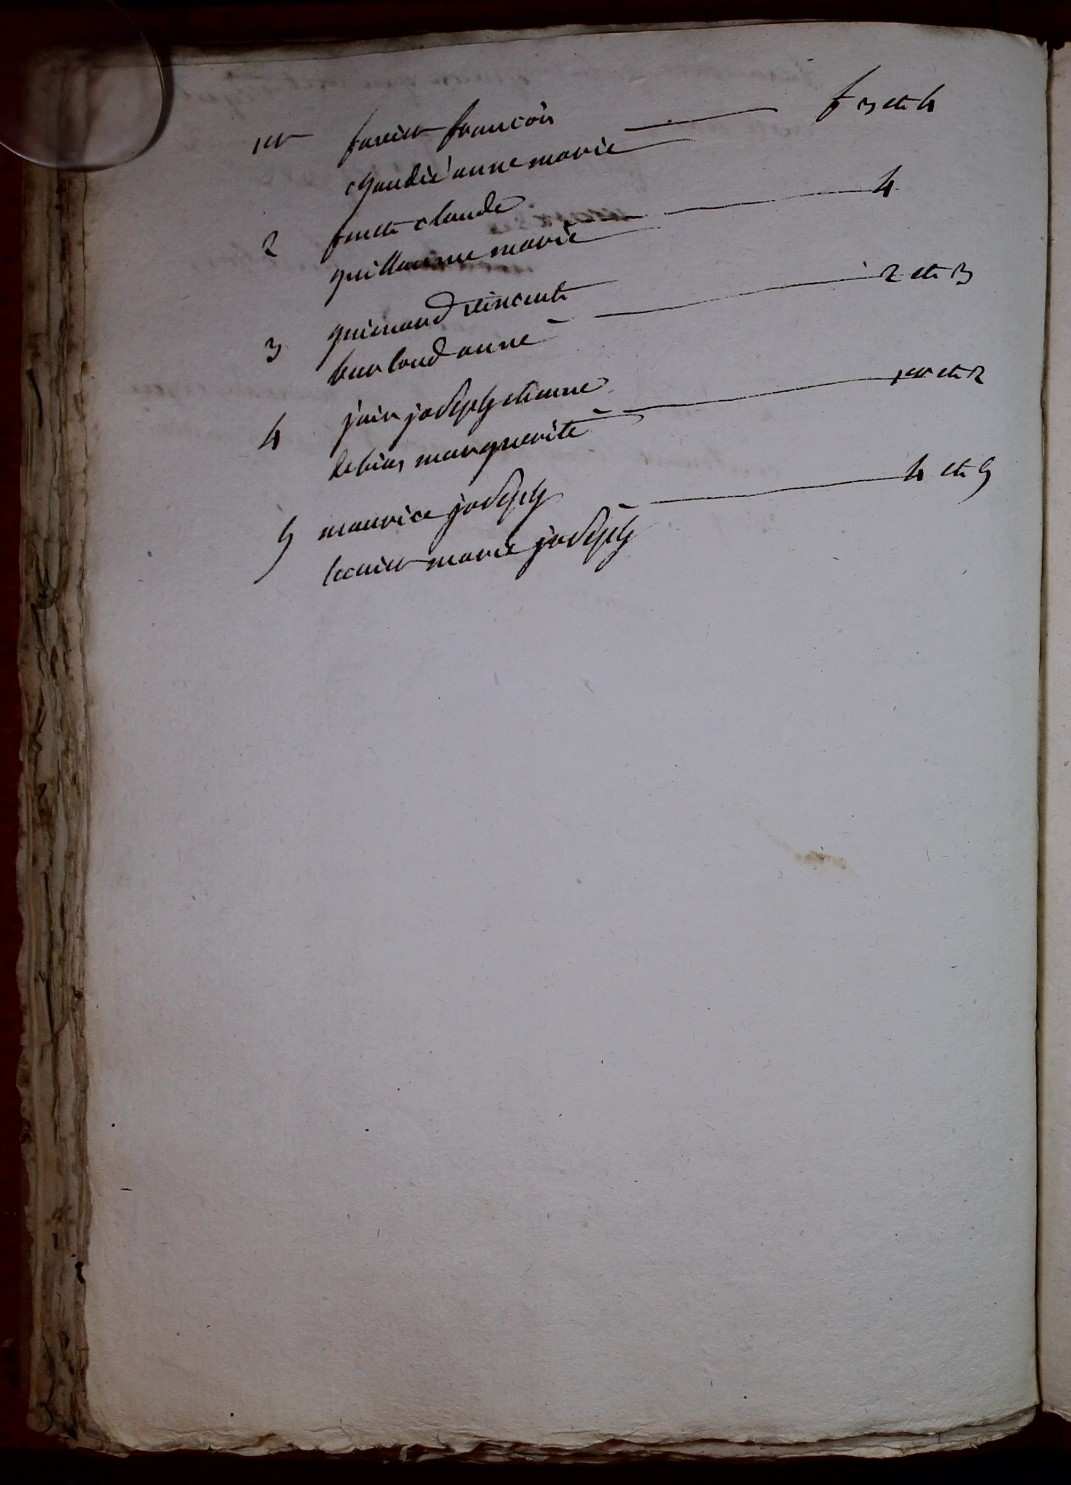 1er favier françois f 3 et 4
chaudié anne marie
2 claude 4
guillaume marie
3 guimaud vincent 2 et 3
burloud anne
4 jain joseph etienne 1er et 2
debias marguerite
5 maurice joseph 4 et 5
marie joseph